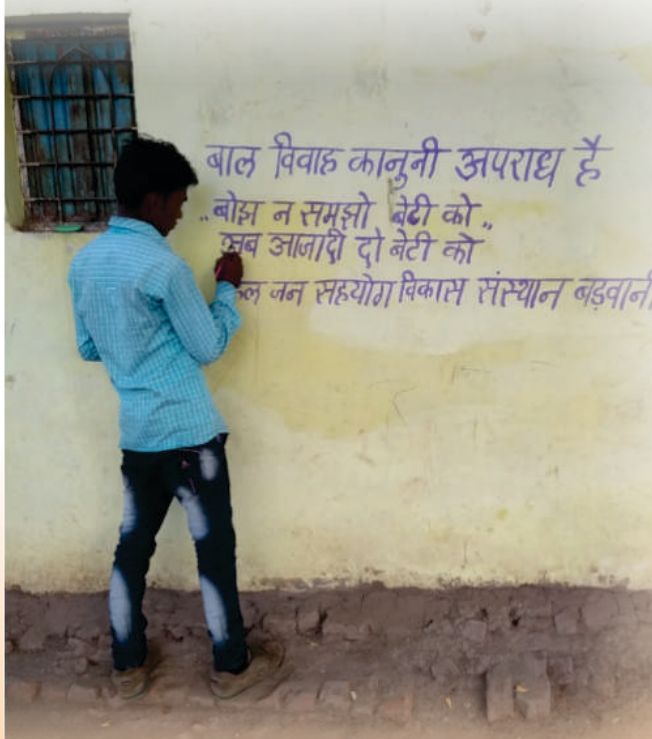 बाल विवाह कानुनी अपराध है
,,बोझ न समझो बेटी को,,
अब आजादी दो बेटी को
जन सहयोग विकास संस्थान बड़वानी